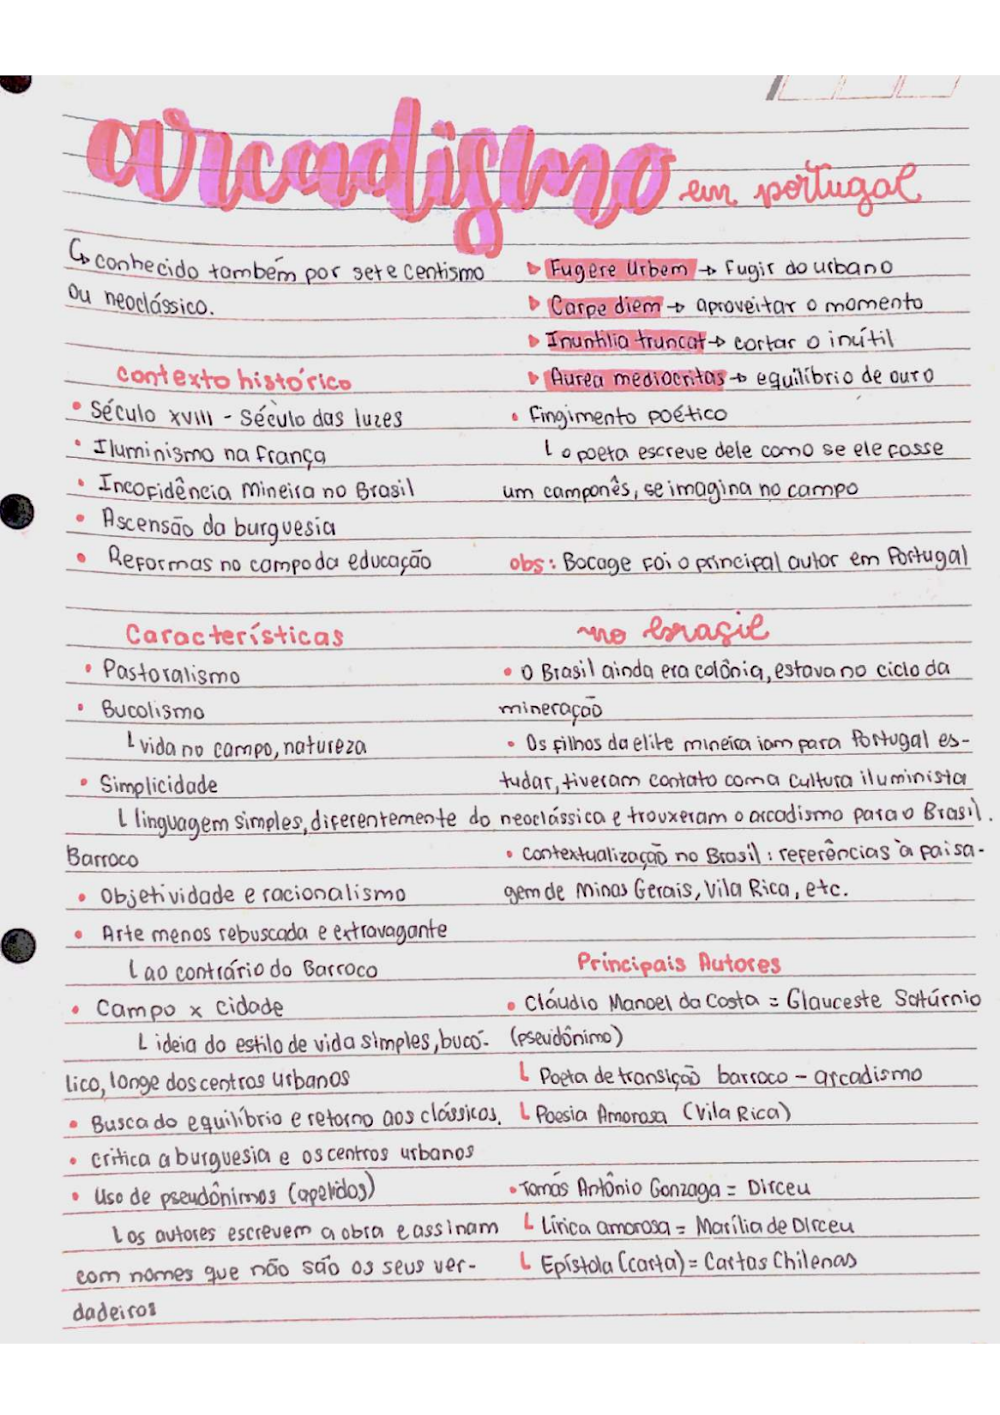 arcadismo em portugal
↳ conhecido também por setecentismo
ou neoclássico.
contexto histórico
• Século XVIII - Século das luzes
• Iluminismo na frança
• Incofidência Mineira no Brasil
• Ascensão da burguesia
• Reformas no campo da educação
Características
• Pastoralismo
• Bucolismo
└ vida no campo, natureza
• Simplicidade
└ linguagem simples, diferentemente do
Barroco
• Objetividade e racionalismo
• Arte menos rebuscada e extravagante
└ ao contrário do Barroco
• Campo x Cidade
└ ideia do estilo de vida simples, bucó-
lico, longe dos centros urbanos
• Busca do equilíbrio e retorno aos clássicos.
• critica a burguesia e os centros urbanos
• Uso de pseudônimos (apelidos)
└ os autores escrevem a obra e assinam
com nomes que não são os seus ver-
dadeiros
▷ Fugere Urbem → fugir do urbano
▷ Carpe diem → aproveitar o momento
▷ Inuntilia truncat → cortar o inútil
▷ Aurea mediocritas → equilíbrio de ouro
• fingimento poético
└ o poeta escreve dele como se ele fosse
um camponês, se imagina no campo
obs: Bocage foi o principal autor em Portugal
no brasil
• O Brasil ainda era colônia, estava no ciclo da
mineração
• Os filhos da elite mineira iam para Portugal es-
tudar, tiveram contato com a cultura iluminista
neoclássica e trouxeram o arcadismo para o Brasil.
• Contextualização no Brasil: referências à paisa-
gem de Minas Gerais, Vila Rica, etc.
Principais Autores
• Cláudio Manoel da Costa = Glauceste Satúrnio
(pseudônimo)
└ Poeta de transição barroco - arcadismo
└ Poesia Amorosa (Vila Rica)
• Tomás Antônio Gonzaga = Dirceu
└ Lírica amorosa = Marília de Dirceu
└ Epístola (carta) = Cartas Chilenas